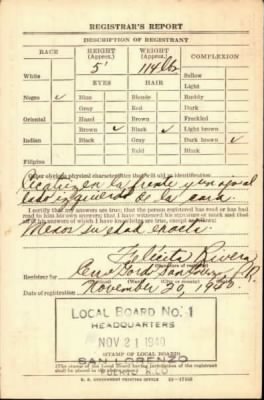 REGISTRAR'S REPORT
DESCRIPTION OF REGISTRANT
RACE HEIGHT (Approx.) WEIGHT (Approx.) COMPLEXION
5' 114 lbs
White EYES HAIR Sallow
Light
Negro ✓ Blue Blonde Ruddy
Gray Red Dark
Oriental Hazel Brown Freckled
Brown ✓ Black ✓ Light brown
Indian Black Gray Dark brown ✓
Bald Black
Filipino
Other obvious physical characteristics that will aid in identification
Cicatriz en la frente y en
lado izquierdo de la cara.
I certify that my answers are true; that the person registered has read or has had
read to him his own answers; that I have witnessed his signature or mark and that
all of his answers of which I have knowledge are true, except as follows:
Menos su edad exacta.
Rivera
(Signature of registrar)
Registrar for San Lorenzo P.R.
(Precinct) (Ward) (City or county) (State)
Date of registration November 20, 1940
LOCAL BOARD No. 1
HEADQUARTERS
NOV 21 1940
STAMP OF LOCAL BOARD
SAN LORENZO
PUERTO RICO
(The stamp of the Local Board having jurisdiction of the registrant
shall be placed in the above space.)
U. S. GOVERNMENT PRINTING OFFICE 16—17105